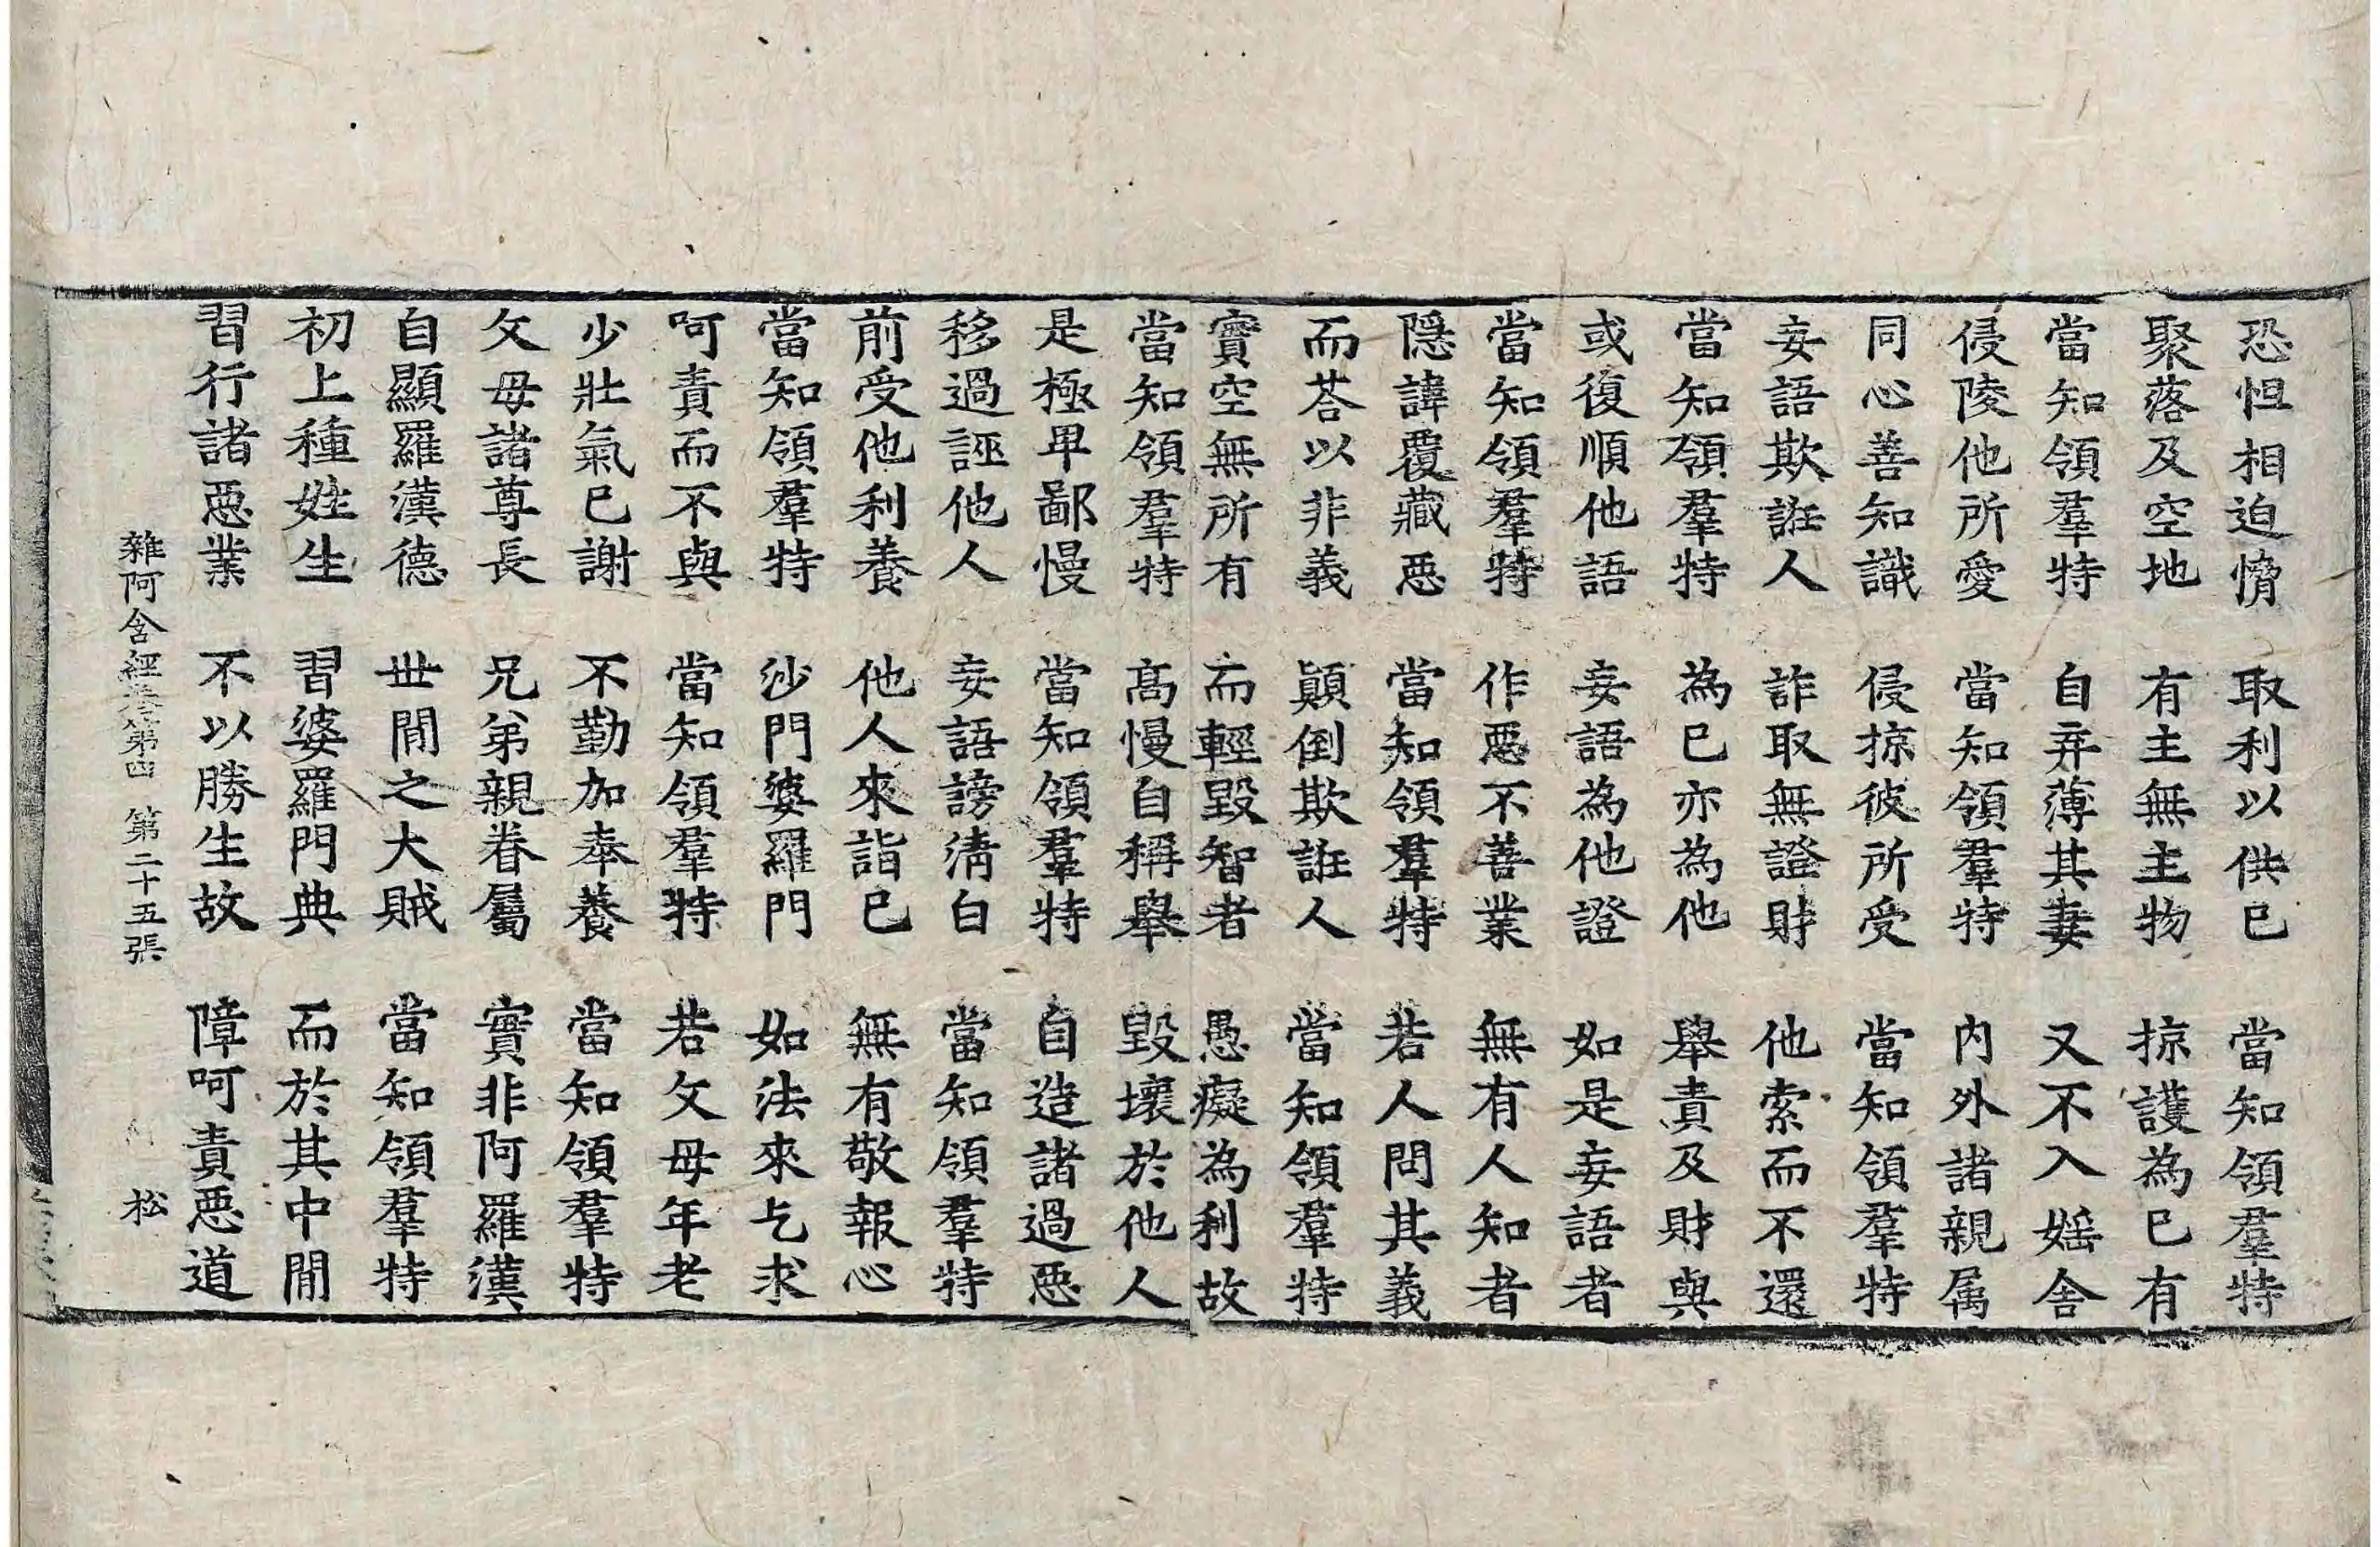 恐怛相迫憎　取利以供巳　當知領羣特
聚落及空地　有主無主物　掠護為巳有
當知領羣特　自弃薄其妻　又不入婬舍
侵陵他所愛　當知領羣特　内外諸親属
同心善知識　侵掠彼所受　當知領羣特
妄語欺誑人　詐取無證財　他索而不還
當知領羣特　為巳亦為他　舉責及財與
或復順他語　妄語為他證　如是妄語者
當知領羣特　作惡不善業　無有人知者
隱諱覆藏惡　當知領羣特　若人問其義
而荅以非義　顛倒欺誑人　當知領羣特
實空無所有　而輕毀智者　愚癡為利故
當知領羣特　髙慢自稱舉　毀壞於他人
是極卑鄙慢　當知領羣特　自造諸過惡
移過誣他人　妄語謗清白　當知領羣特
前受他利養　他人來詣巳　無有敬報心
當知領羣特　沙門婆羅門　如法來乞求
呵責而不與　當知領羣特　若父母年老
少壯氣巳謝　不勤加奉養　當知領羣特
父母諸尊長　兄弟親眷屬　實非阿羅漢
自顯羅漢德　世間之大賊　當知領羣特
初上種姓生　習婆羅門典　而於其中間
習行諸惡業　不以勝生故　障呵責惡道
雜阿含經卷第四　第二十五張　松